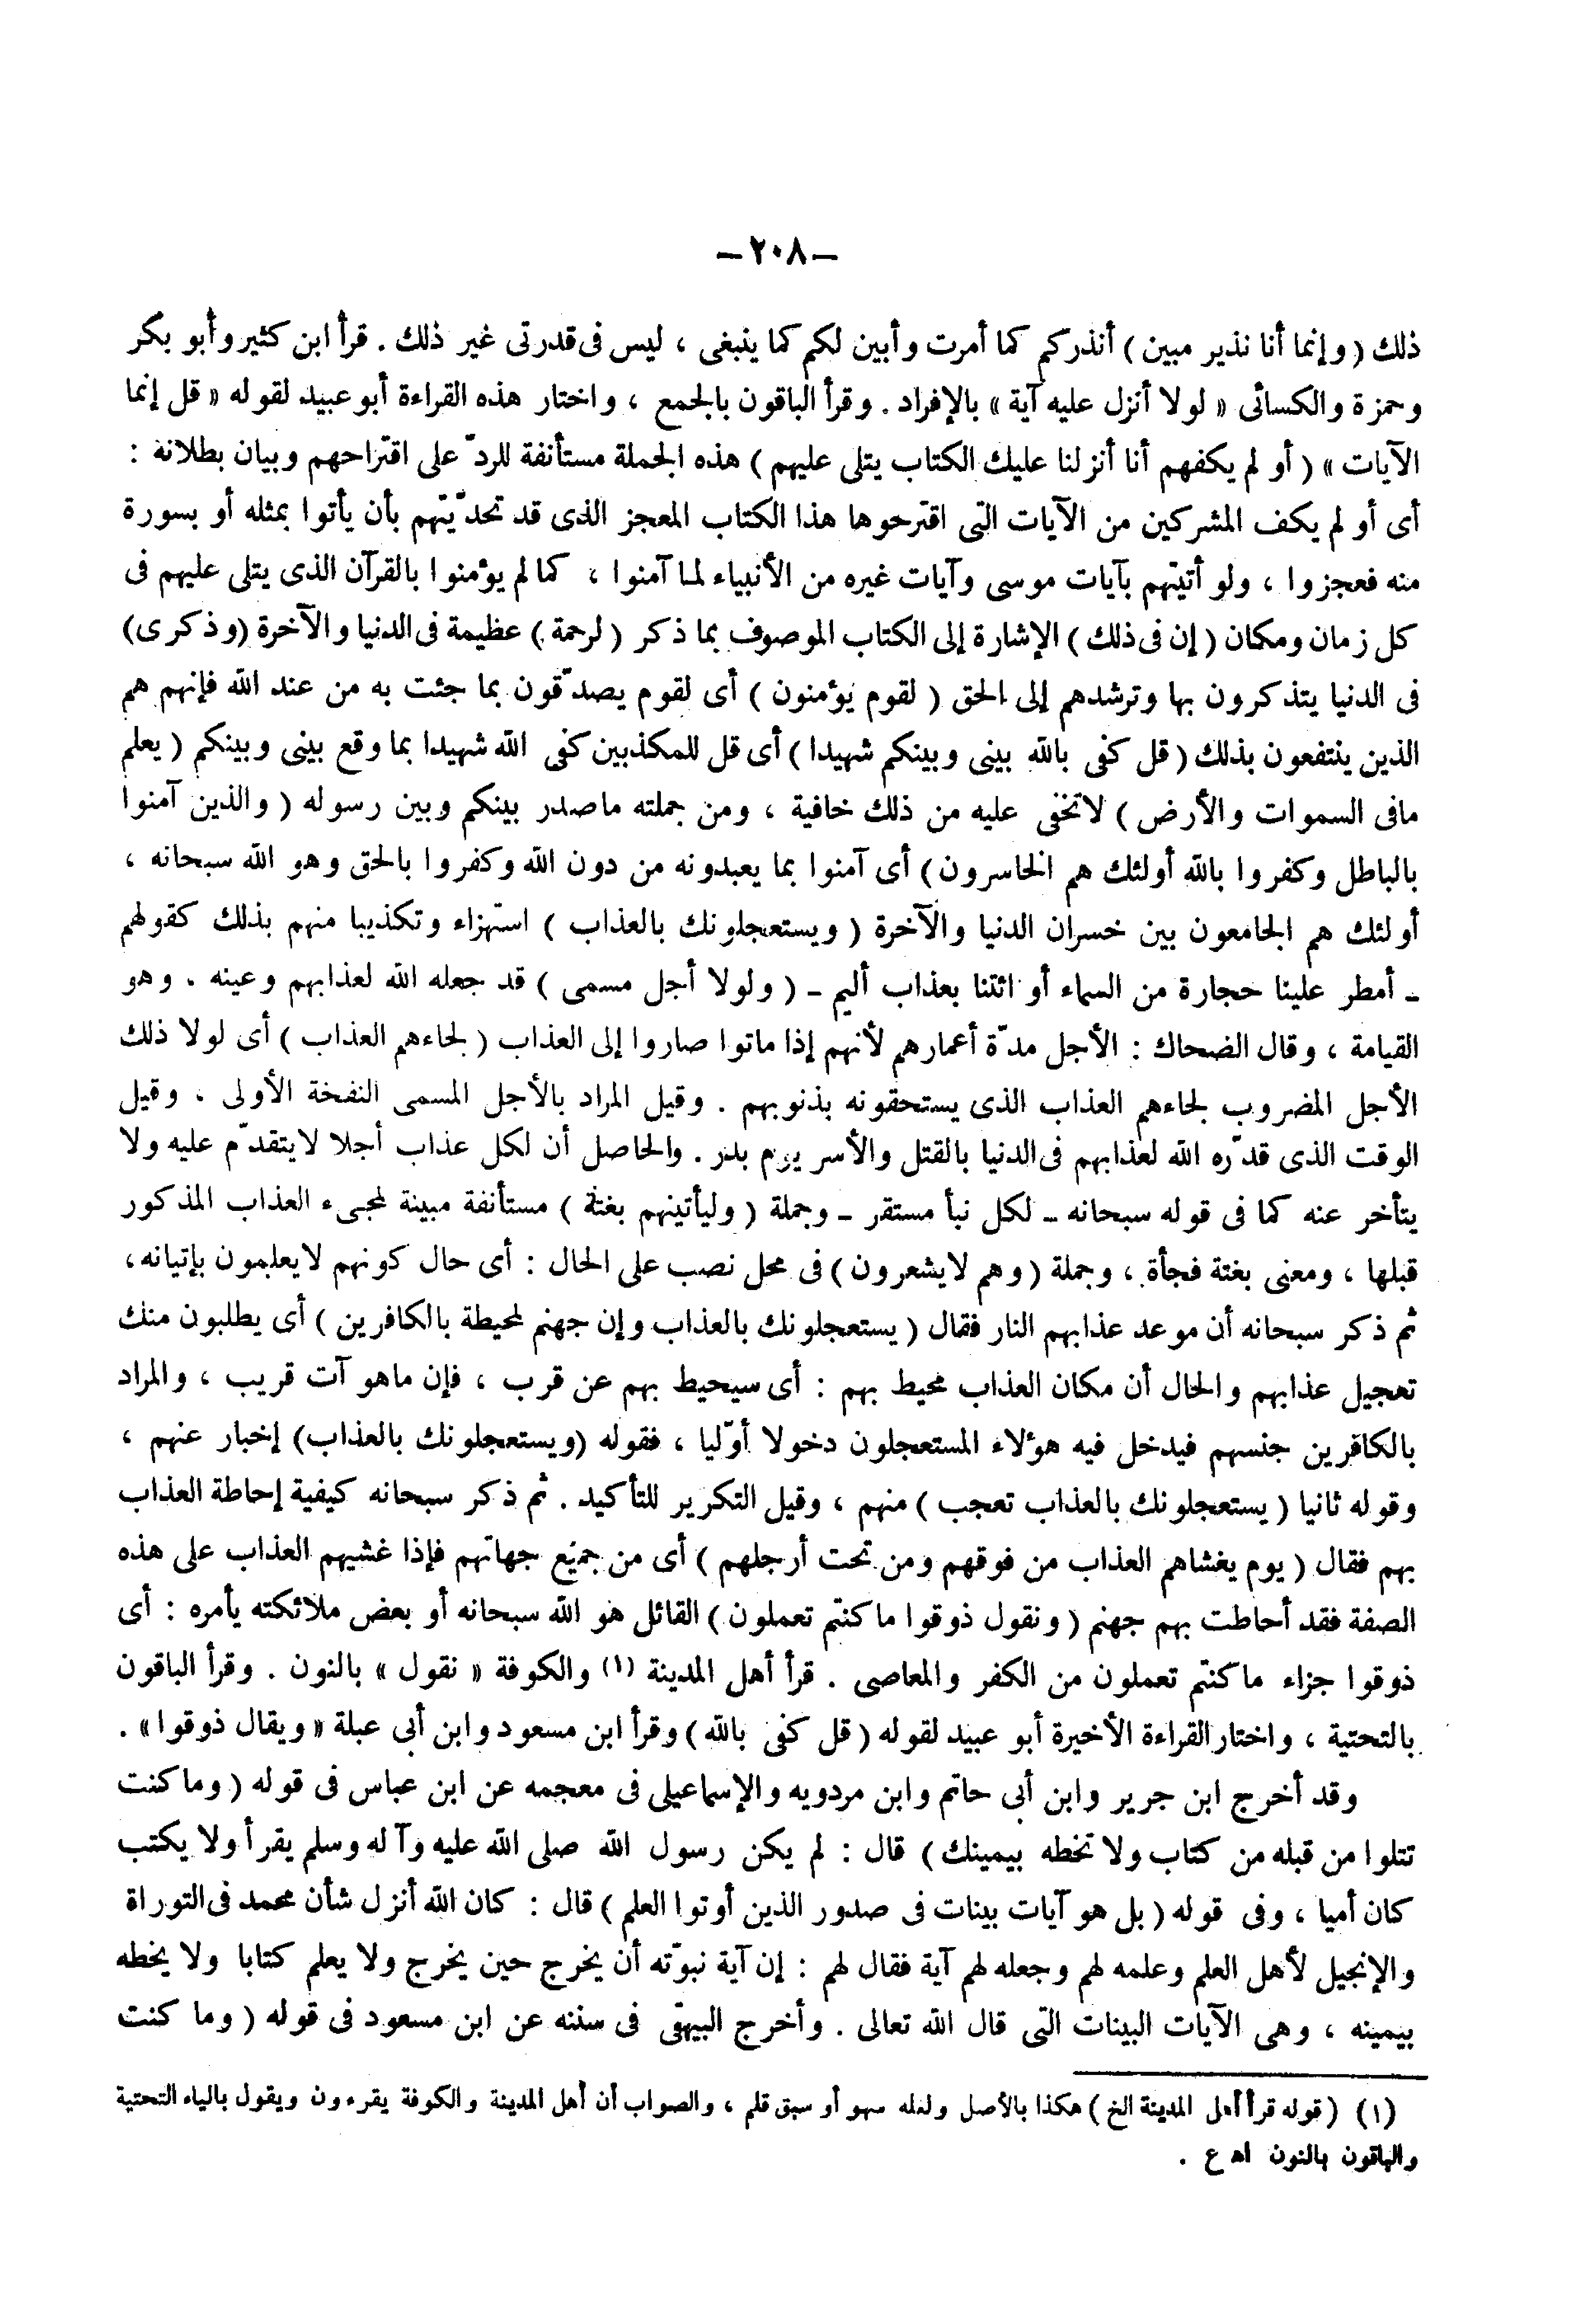 ـ ٢٠٨ ـ
ذلك ( وإنما أنا نذير مبين ) أنذركم كما أمرت وأبين لكم كما ينبغى ، ليس فى قدرتى غير ذلك . قرأ ابن كثير وأبو بكر
وحمزة والكسائى « لولا أنزل عليه آية » بالإفراد . وقرأ الباقون بالجمع ، واختار هذه القراءة أبو عبيد لقوله « قل إنما
الآيات » ( أو لم يكفهم أنا أنزلنا عليك الكتاب يتلى عليهم ) هذه الجملة مستأنفة للردّ على اقتراحهم وبيان بطلانه :
أى أو لم يكف المشركين من الآيات التى اقترحوها هذا الكتاب المعجز الذى قد تحدّيتهم بأن يأتوا بمثله أو بسورة
منه فعجزوا ، ولو أتيتهم بآيات موسى وآيات غيره من الأنبياء لما آمنوا ، كما لم يؤمنوا بالقرآن الذى يتلى عليهم فى
كل زمان ومكان ( إن فى ذلك ) الإشارة إلى الكتاب الموصوف بما ذكر ( لرحمة ) عظيمة فى الدنيا والآخرة ( وذكرى )
فى الدنيا يتذكرون بها وترشدهم إلى الحق ( لقوم يؤمنون ) أى لقوم يصدّقون بما جئت به من عند الله فإنهم هم
الذين ينتفعون بذلك ( قل كفى بالله بينى وبينكم شهيدا ) أى قل للمكذبين كفى الله شهيدا بما وقع بينى وبينكم ( يعلم
مافى السموات والأرض ) لاتخفى عليه من ذلك خافية ، ومن جملته ماصدر بينكم وبين رسوله ( والذين آمنوا
بالباطل وكفروا بالله أولئك هم الخاسرون ) أى آمنوا بما يعبدونه من دون الله وكفروا بالحق وهو الله سبحانه ،
أولئك هم الجامعون بين خسران الدنيا والآخرة ( ويستعجلونك بالعذاب ) استهزاء وتكذيبا منهم بذلك كقولهم
ـ أمطر علينا حجارة من السماء أو ائتنا بعذاب أليم ـ ( ولولا أجل مسمى ) قد جعله الله لعذابهم وعينه ، وهو
القيامة ، وقال الضحاك : الأجل مدّة أعمارهم لأنهم إذا ماتوا صاروا إلى العذاب ( لجاءهم العذاب ) أى لولا ذلك
الأجل المضروب لجاءهم العذاب الذى يستحقونه بذنوبهم . وقيل المراد بالأجل المسمى النفخة الأولى ، وقيل
الوقت الذى قدّره الله لعذابهم فى الدنيا بالقتل والأسر يوم بدر . والحاصل أن لكل عذاب أجلا لايتقدّم عليه ولا
يتأخر عنه كما فى قوله سبحانه ـ لكل نبأ مستقر ـ وجملة ( وليأتينهم بغتة ) مستأنفة مبينة لمجىء العذاب المذكور
قبلها ، ومعنى بغتة فجأة ، وجملة ( وهم لايشعرون ) فى محل نصب على الحال : أى حال كونهم لايعلمون بإتيانه ،
ثم ذكر سبحانه أن موعد عذابهم النار فقال ( يستعجلونك بالعذاب وإن جهنم لمحيطة بالكافرين ) أى يطلبون منك
تعجيل عذابهم والحال أن مكان العذاب محيط بهم : أى سيحيط بهم عن قرب ، فإن ماهو آت قريب ، والمراد
بالكافرين جنسهم فيدخل فيه هؤلاء المستعجلون دخولا أوّليا ، فقوله ( ويستعجلونك بالعذاب ) إخبار عنهم ،
وقوله ثانيا ( يستعجلونك بالعذاب تعجب ) منهم ، وقيل التكرير للتأكيد . ثم ذكر سبحانه كيفية إحاطة العذاب
بهم فقال ( يوم يغشاهم العذاب من فوقهم ومن تحت أرجلهم ) أى من جميع جهاتهم فإذا غشيهم العذاب على هذه
الصفة فقد أحاطت بهم جهنم ( ونقول ذوقوا ماكنتم تعملون ) القائل هو الله سبحانه أو بعض ملائكته يأمره : أى
ذوقوا جزاء ماكنتم تعملون من الكفر والمعاصى . قرأ أهل المدينة (١) والكوفة « نقول » بالنون . وقرأ الباقون
بالتحتية ، واختار القراءة الأخيرة أبو عبيد لقوله ( قل كفى بالله ) وقرأ ابن مسعود وابن أبى عبلة « ويقال ذوقوا » .
وقد أخرج ابن جرير وابن أبى حاتم وابن مردويه والإسماعيلى فى معجمه عن ابن عباس فى قوله ( وماكنت
تتلوا من قبله من كتاب ولا تخطه بيمينك ) قال : لم يكن رسول الله صلى الله عليه وآله وسلم يقرأ ولا يكتب
كان أميا ، وفى قوله ( بل هو آيات بينات فى صدور الذين أوتوا العلم ) قال : كان الله أنزل شأن محمد فى التوراة
والإنجيل لأهل العلم وعلمه لهم وجعله لهم آية فقال لهم : إن آية نبوّته أن يخرج حين يخرج ولا يعلم كتابا ولا يخطه
بيمينه ، وهى الآيات البينات التى قال الله تعالى . وأخرج البيهقى فى سننه عن ابن مسعود فى قوله ( وما كنت
(١) ( قوله قرأ أهل المدينة الخ ) هكذا بالأصل ولعله سهو أو سبق قلم ، والصواب أن أهل المدينة والكوفة يقرءون ويقول بالياء التحتية
والباقون بالنون اه ع .